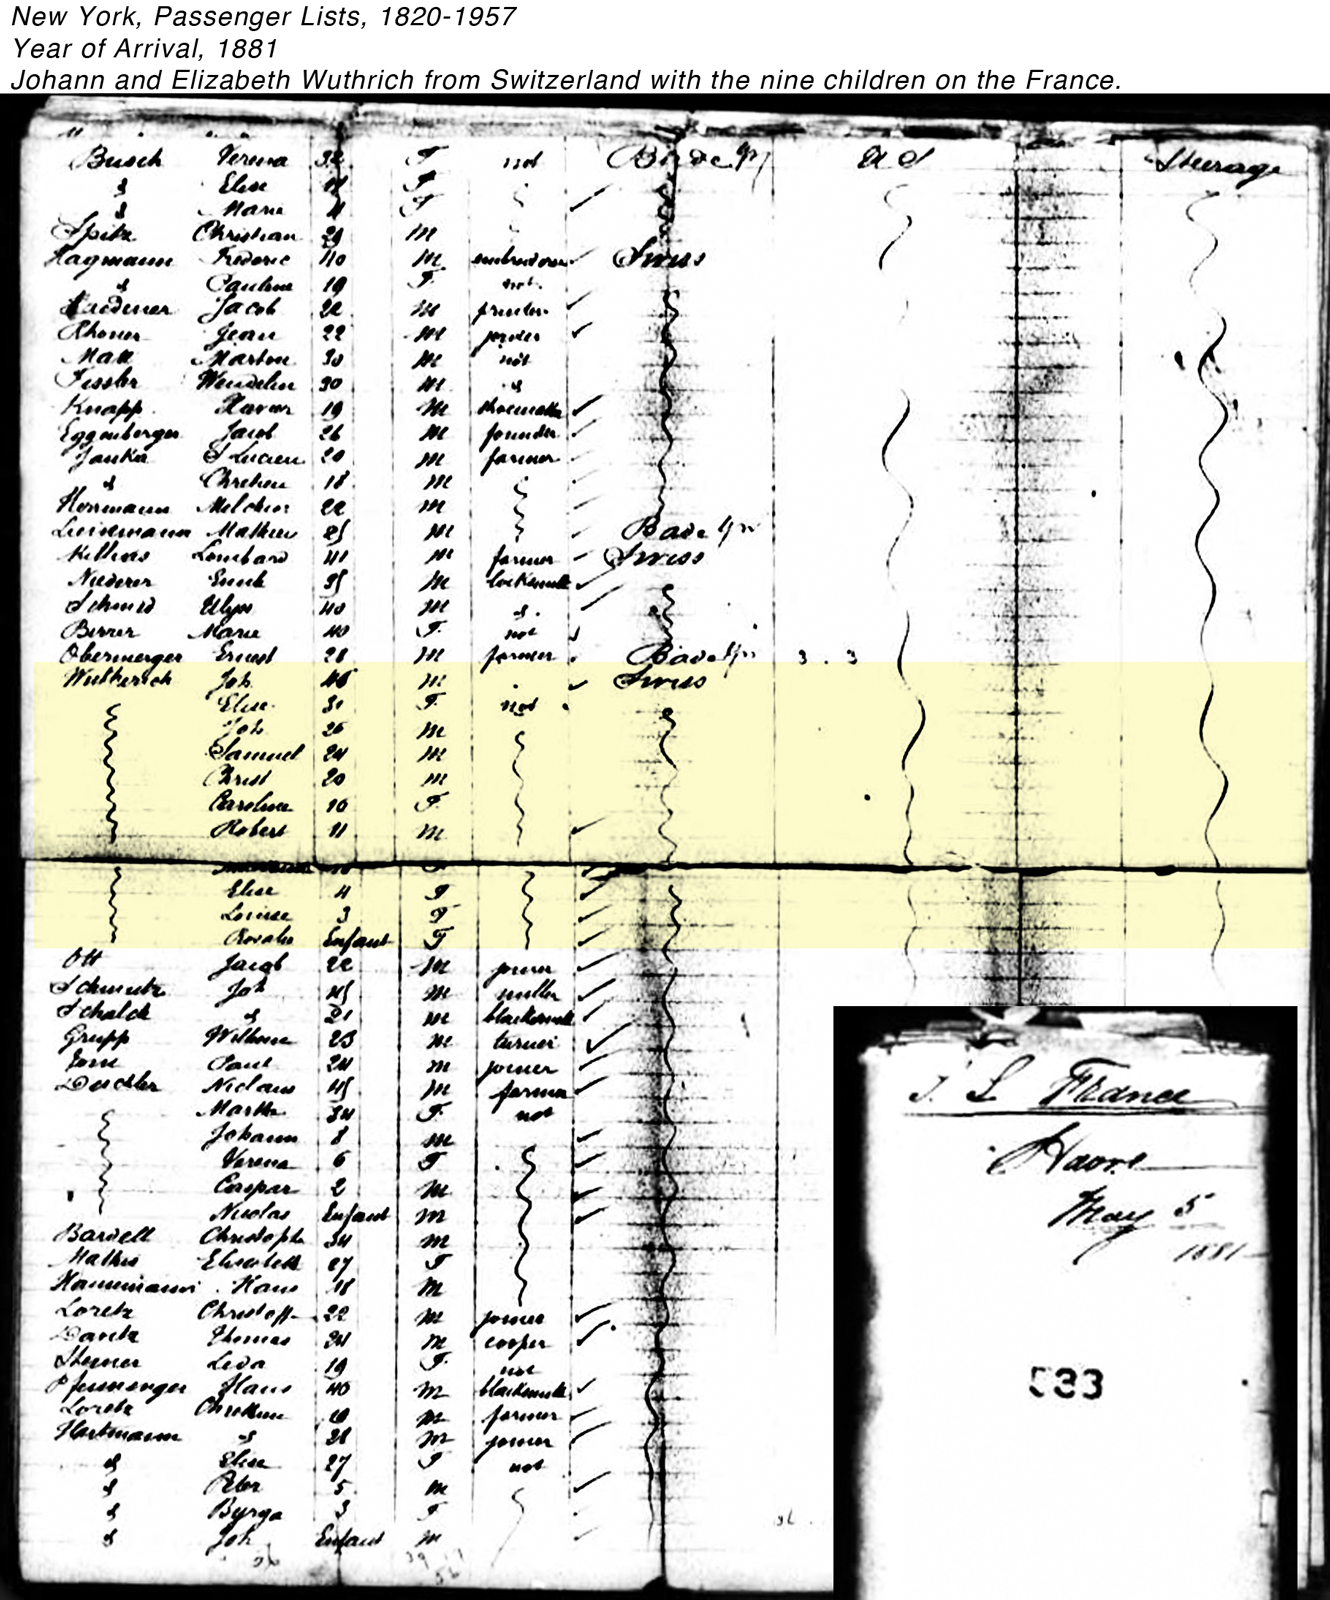 New York, Passenger Lists, 1820-1957
Year of Arrival, 1881
Johann and Elizabeth Wuthrich from Switzerland with the nine children on the France.
Busch Verena 32 F not Bade U S Steerage
Elise F
Marie 4 F
Spitz Christian 29 M
Hagmann Frederic 40 M Swiss
Pauline 19 F not
Jacob 22 M
Rhoner Jean 22 M
Matt Martin 30 M not
Fessler Wendelin 30 M
Knapp Xavier 19 M shoemaker
Eggenberger Jacob 26 M founder
Janka Lucien 20 M farmer
Chretien 18 M
Herrmann Melchior 22 M
Mathieu 25 M Bade
Lombard 41 M farmer Swiss
Niederer Emile 35 M locksmith
Schmid Ulyss 40 M
Birrer Marie 40 F not
Obermerger Ernest 28 M farmer Bade 3 . 3
Wutherich Joh. 46 M Swiss
Elise 31 F not
Joh 26 M
Samuel 24 M
Christ 20 M
Caroline 16 F
Robert 11 M
F
Elise 4 F
Louise 3 F
Rosalie Enfant F
Ott Jacob 22 M joiner
Schmutz Joh 45 M miller
Schalck 21 M blacksmith
Grupp Wilhem 23 M turner
Paul 24 M joiner
Niclaus 45 M farmer
Martha 34 F not
Johann 8 M
Verena 6 F
Caspar 2 M
Nicolas Enfant M
Bardell Christoph 34 M
Mathis Elisabeth 27 F
Hannimann Hans 18 M
Loretz Christoff 22 M joiner
Thomas 34 M cooper
Sterner Leda 19 F not
Hans 40 M blacksmith
Loretz Christian 19 M farmer
Hartmann 28 M joiner
Elise 27 F not
Peter 5 M
Byrga 3 F
Joh Enfant M
S France
Havre
May 5
1881
533